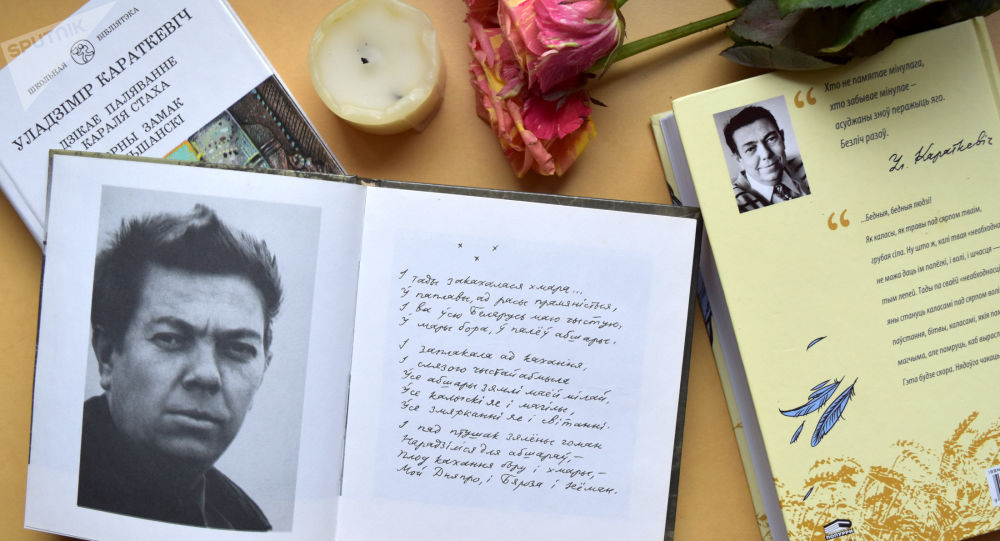 SPUTNIK
ШКОЛЬНАЯ БІБЛІЯТЭКА
УЛАДЗІМІР КАРАТКЕВІЧ
ДЗІКАЕ ПАЛЯВАННЕ
КАРАЛЯ СТАХА
ЗАМАК
І тады закахалася хмара...
Ў паплавы, ад расы прамяністыя,
І ва ўсю Беларусь маю чыстую,
Ў мары бора, ў палёў абшары.
І заплакала ад кахання,
І слязою чыстай абмыла
Ўсе абшары зямлі маёй мілай,
Ўсе калыскі яе і магілы,
Ўсе змярканні яе і світанні.
І пад птушак зялёны гоман
Нарадзіліся для абшараў,—
Плод кахання бору і хмары,—
Мой Дняпро, і Бяроза і Нёман.
“ Хто не памятае мінулага,
хто забывае мінулае –
асуджаны зноў перажыць яго.
Безліч разоў.
Ул. Караткевіч
“ ...Бедныя, бедныя людзі!
Як каласы, як травы пад сярпом тваім,
грубая сіла. Ну што ж, калі твая «неабходнасць»
не можа даць ім палёгкі, і волі, і шчасця —
тым лепей. Тады па сваёй «неабходнасці»
яны стануць каласамі пад сярпом
паўстання, бітвы, каласамі, якія
магчыма, але памруць, каб
Гэта будзе скора. Нядоўга
ПОПУРРИ
ISBN